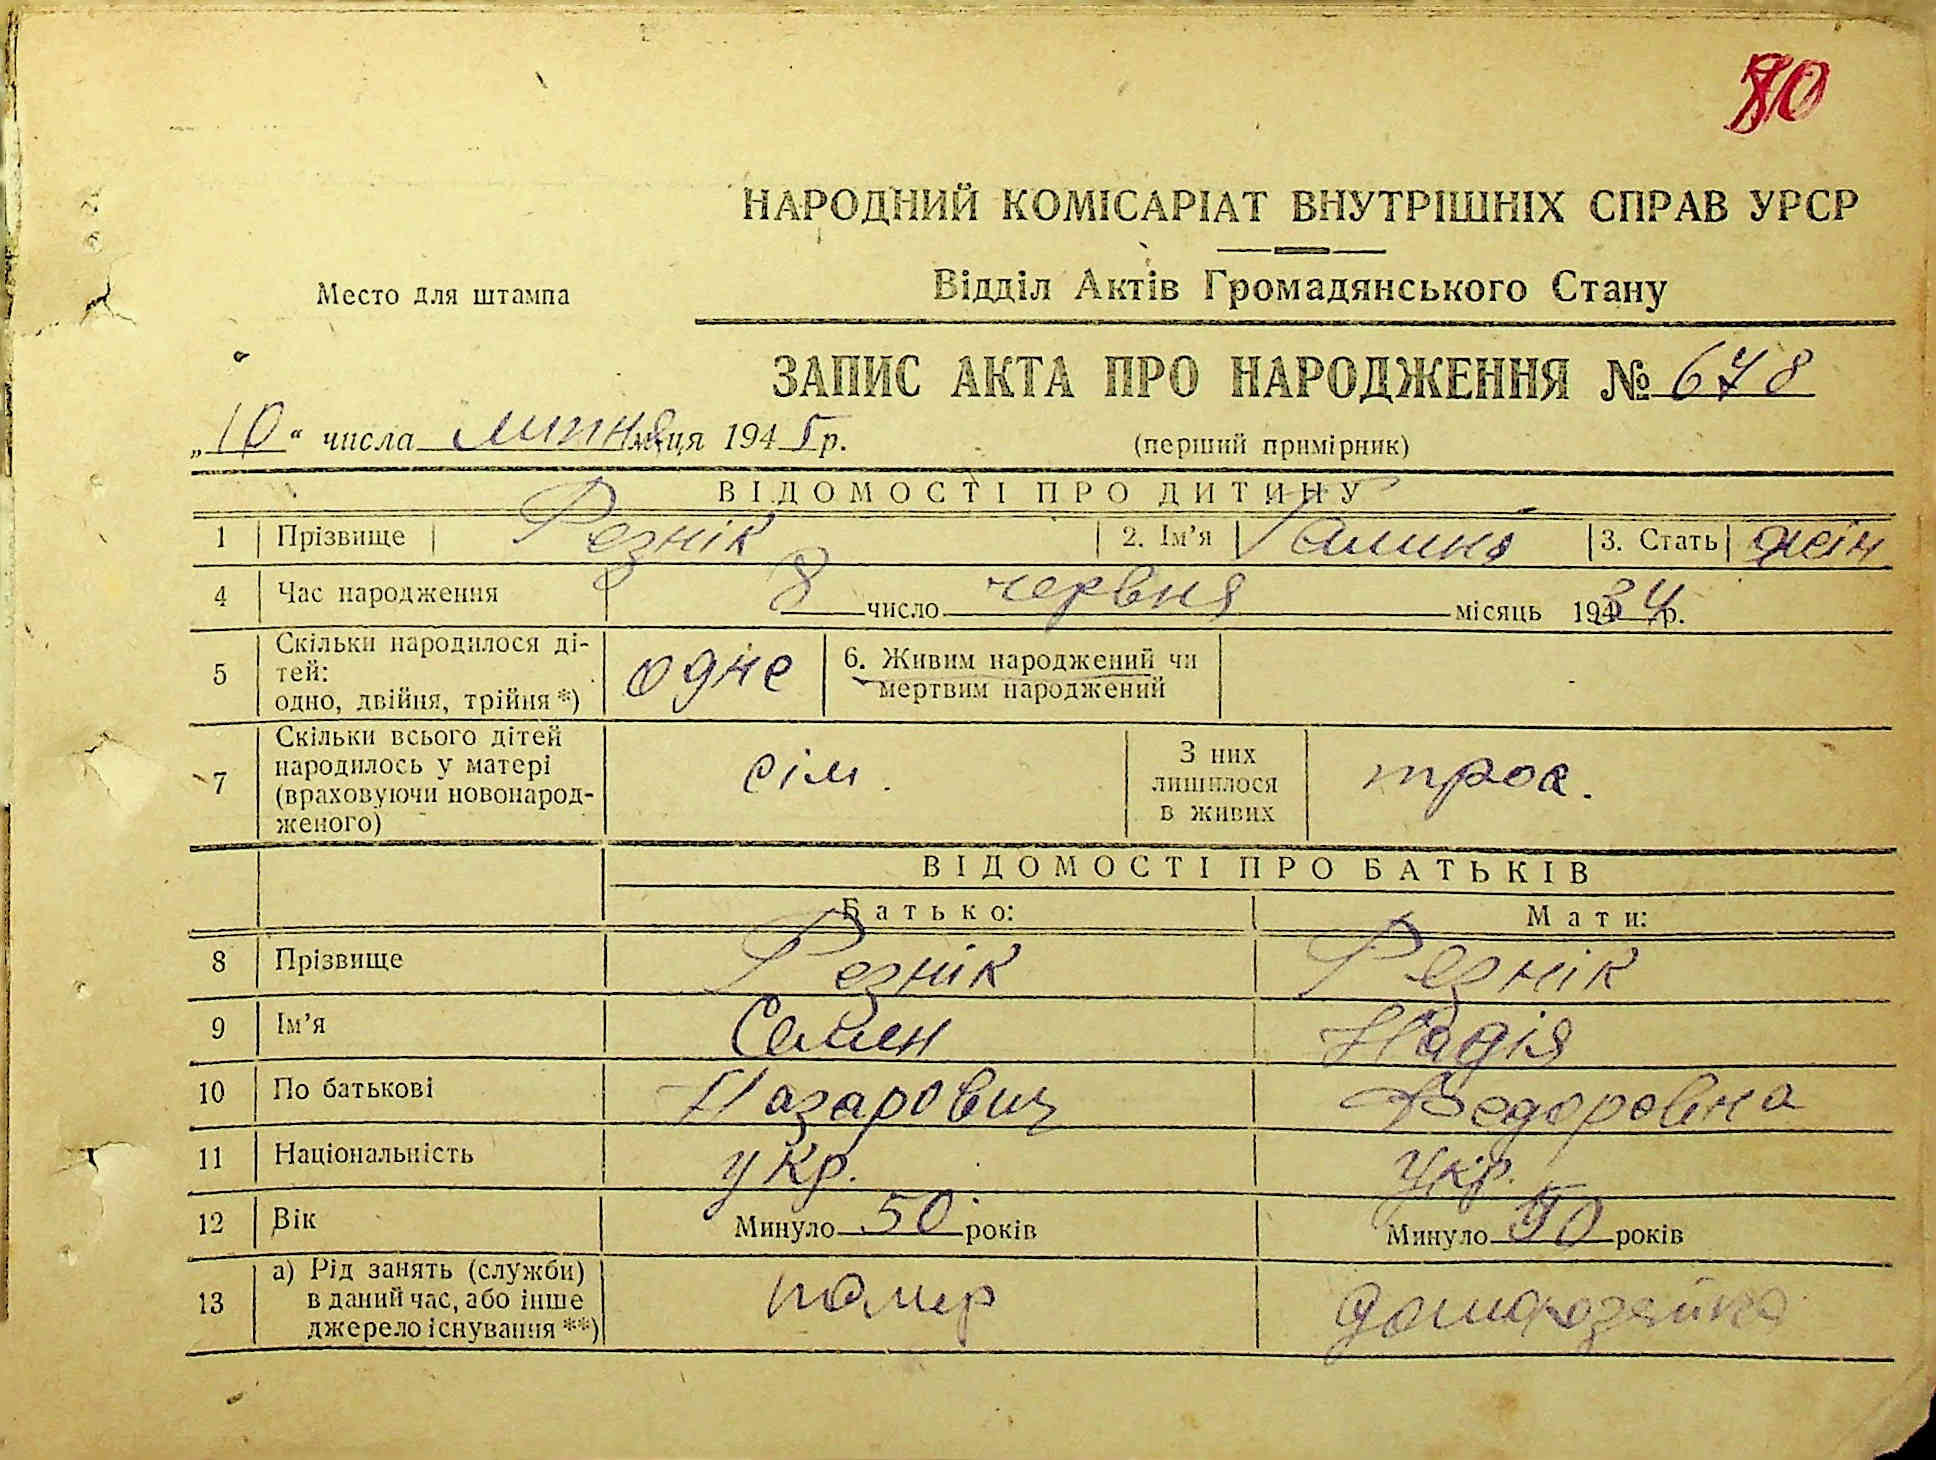 80
НАРОДНИЙ КОМІСАРІАТ ВНУТРІШНІХ СПРАВ УРСР
Место для штампа
Відділ Актів Громадянського Стану
ЗАПИС АКТА ПРО НАРОДЖЕННЯ № 678
„10“ числа липня м-ця 1945 р.
(перший примірник)
ВІДОМОСТІ ПРО ДИТИНУ
1 Прізвище Резнік 2. Ім'я Галина 3. Стать жін
4 Час народження 8 число червня місяць 1934 р.
5 Скільки народилося ді-
тей:
одно, двійня, трійня *) одне 6. Живим народжений чи
мертвим народжений
7 Скільки всього дітей
народилось у матері
(враховуючи новонарод-
женого) сім. З них
лишилося
в живих троє.
ВІДОМОСТІ ПРО БАТЬКІВ
Батько: Мати:
8 Прізвище Резнік Резнік
9 Ім'я Семен Надія
10 По батькові Назарович Федоровна
11 Національність укр. укр.
12 Вік Минуло 50 років Минуло років
13 а) Рід занять (служби)
в даний час, або інше
джерело існування **) помер домохазяйка